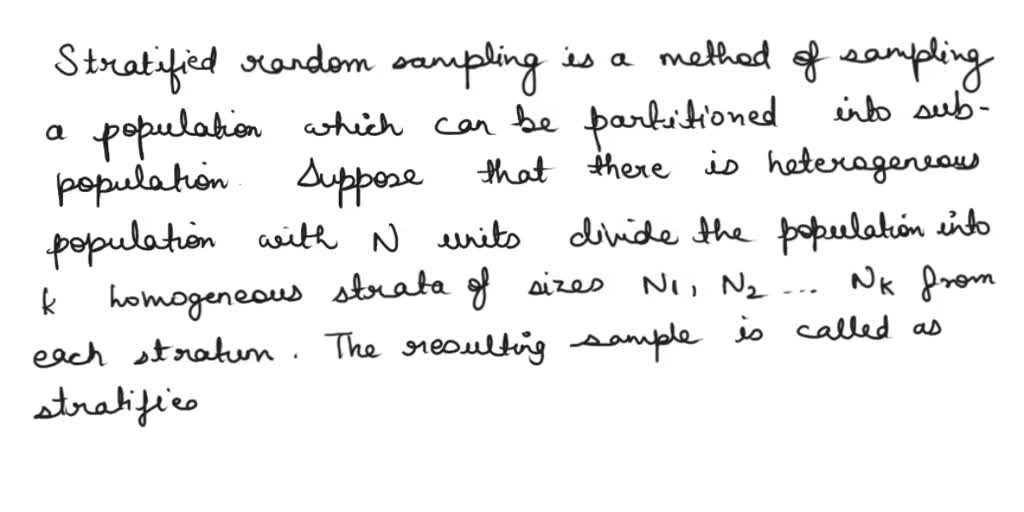 Stratified random sampling is a method of sampling
a population which can be partitioned into sub-
population. Suppose that there is heterogeneous
population with N units divide the population into
k homogeneous strata of sizes N1, N2 ... NK from
each stratum. The resulting sample is called as
stratifies